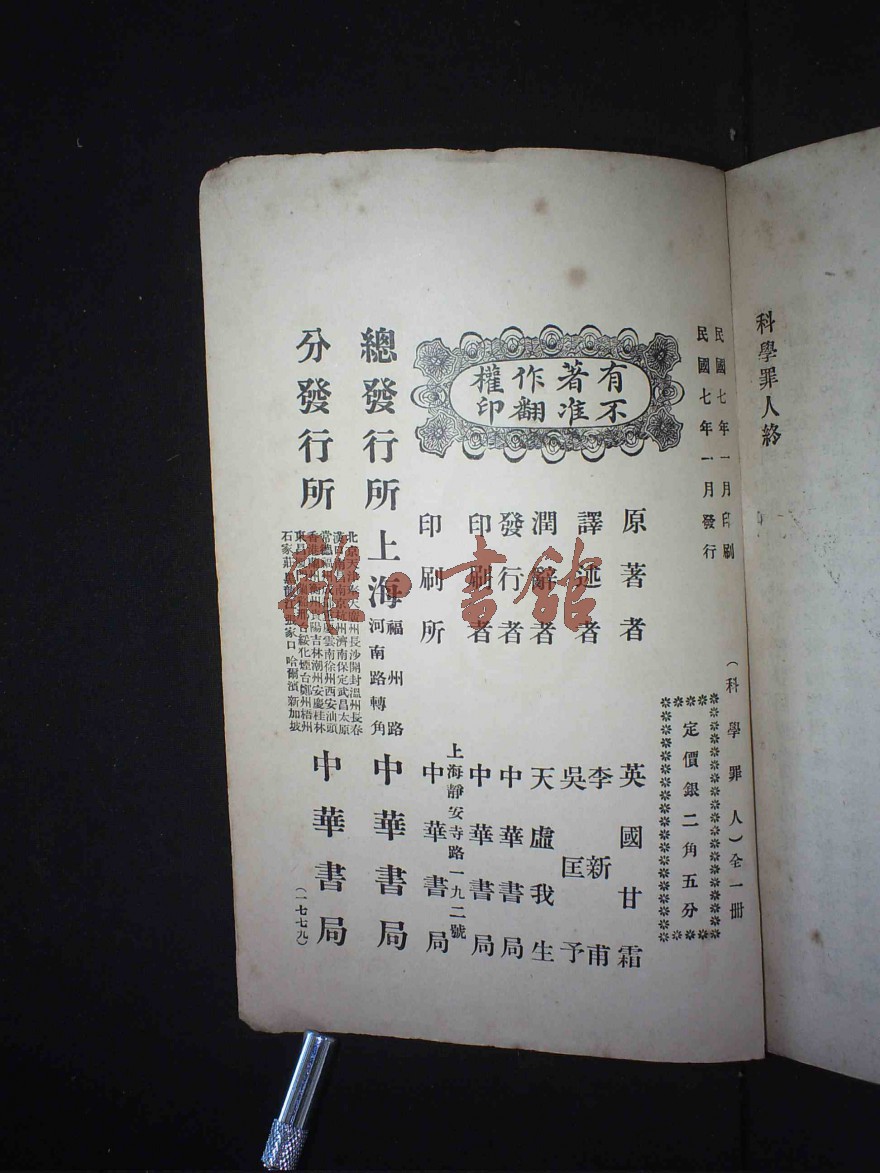 科學罪人終
民國七年一月印刷
民國七年一月發行
(科學罪人)全一冊
定價銀二角五分
有著作權
不准翻印
原著者 英國甘霜
譯述者 李新甫
吳匡予
潤辭者 天虛我生
發行者 中華書局
印刷者 中華書局
上海靜安寺路一九二號
印刷所 中華書局
總發行所 上海 福州路
河南路轉角 中華書局
分發行所
州長沙開封溫州長春
南京杭州濟南保定武昌太原
雲南徐州西安汕頭
陽吉林潮州安慶桂林
綏化煙台鄭州梧州
石家莊 張家口 哈爾濱 新加坡
中華書局
(一七七九)